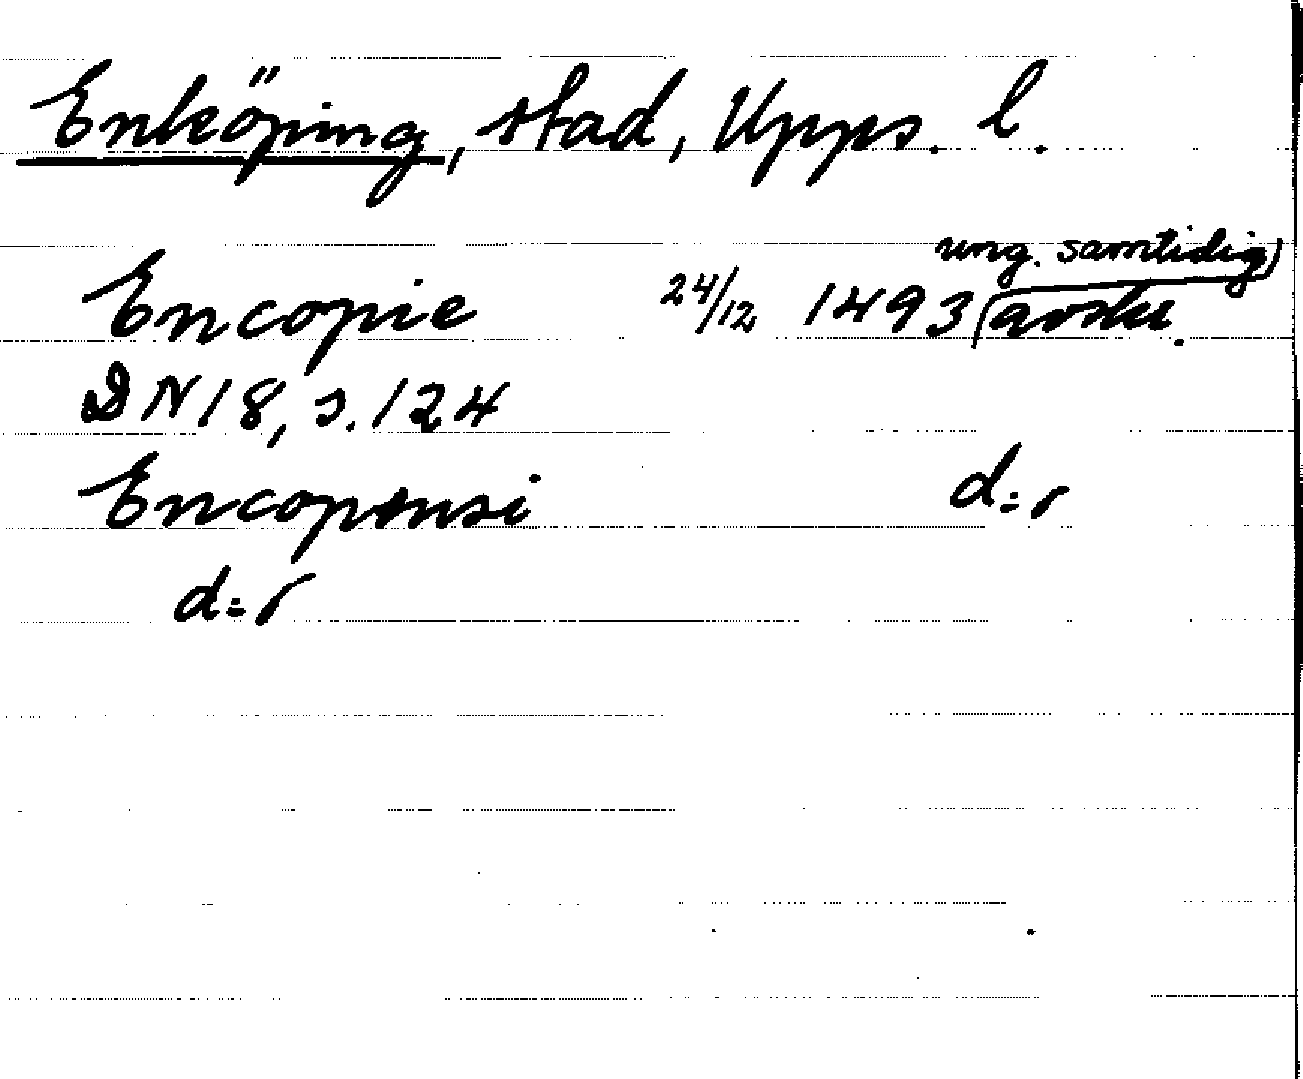 Enköping, stad, Upps. l.
ung. samtidig
Encopie 24/12 1493 avskr.
DN 18, s. 124
Encopensi d:r
d:r